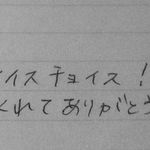 イスチョイス!
くれてありがとう